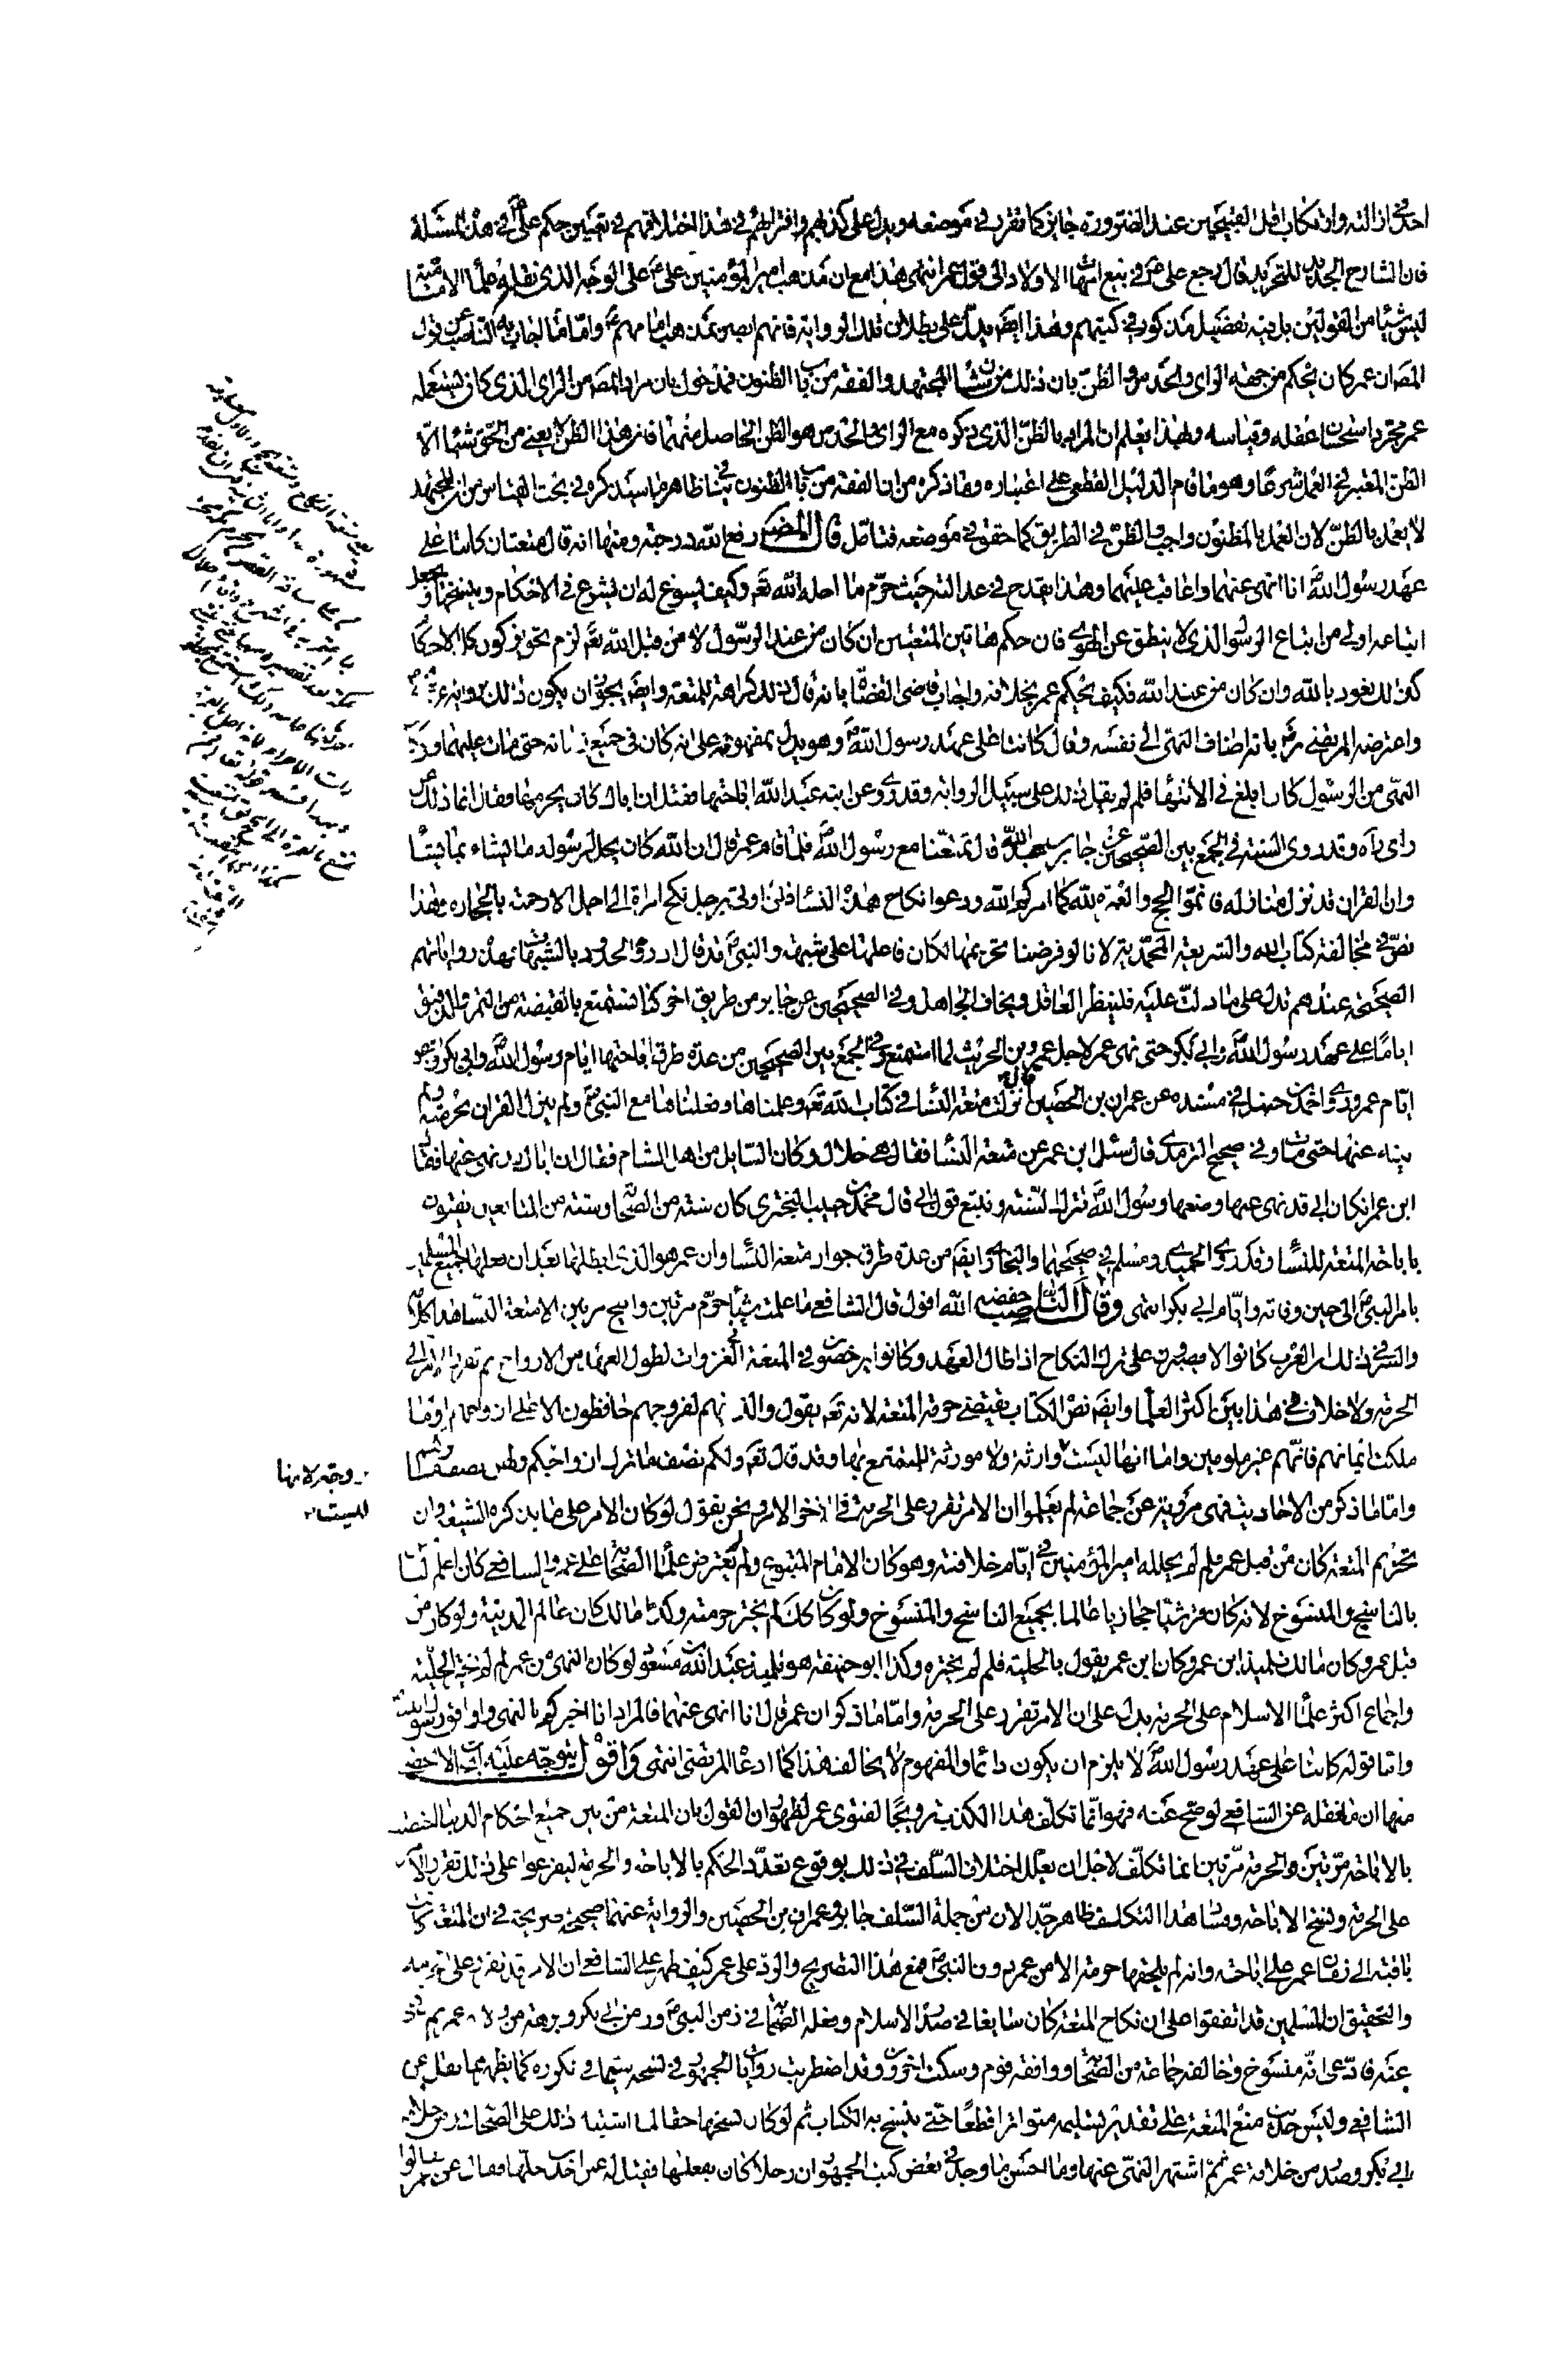 احد في ازالته وارتكاب اقل القبيحين عند الضرورة جايز كما تقرر في موضعه ويدل على كذبهم وافترائهم في هذا اختلافهم في تعيين حكم علي في هذه المسئلة
فان الشارح الجديد للتجريد قال رجع علي في بيع امهات الاولاد الى قول عمر انتهى هذا مع ان مذهب امير المؤمنين علي على الوجه الذي نقله علماء الامامية
ليس شيئا من القولين بل فيه تفصيل مذكور في كتبهم وهذا ايضا يدل على بطلان تلك الرواية فانهم ابصر بمذهب امامهم واما ما اجاب به الناصب عن قول
المص ان عمر كان يحكم من جهة الراي والحدس والظن بان ذلك من شان المجتهد والفقه من باب الظنون فمدخول بان مراد المص من الراي الذي كان يستعمله
عمر مجرد استحسان عقله وقياسه ولهذا يعلم ان المراد بالظن الذي ذكره مع الراي والحدس هو الظن الحاصل منهما فان هذا الظن لا يغني من الحق شيئا الا
الظن المعتبر في العمل شرعا وهو ما قام الدليل القطعي على اعتباره وما ذكره من ان الفقه من باب الظنون فينا ظاهر ما سيذكره في بحث القياس من ان المجتهد
لا يعمل بالظن لان العمل بالمظنون واجب والظن في الطريق كما حقق في موضعه فتامل قال المص رفع الله درجته ومنها انه قال متعتان كانتا على
عهد رسول الله انا انهى عنهما واعاقب عليهما وهذا يقدح في عدالته حيث حرم ما احله الله تعالى وكيف يسوغ له ان يشرع في الاحكام وينسخها ويجعل
اتباعه اولى من اتباع الرسول الذي لا ينطق عن الهوى فان حكم هاتين المتعتين ان كان من عند الرسول لا من قبل الله تعالى لزم تجويز كون كل الاحكام
كذلك نعوذ بالله وان كان من عند الله فكيف يحكم عمر بخلافه واجاب قاضي القضاة بانه قال ذلك كراهة للمتعة وايضا يجوز ان يكون ذلك رواية عنه
واعترضه المرتضى بانه اضاف النهي الى نفسه وقال كانتا على عهد رسول الله وهو يدل بمفهومه على انه كان في جميع زمانه حتى مات عليهما ولو كان
النهي من الرسول كان ابلغ في الانتهاء فلم لم يقل ذلك على سبيل الرواية وقد روى عن ابنه عبد الله اباحتها فقيل ان اباك كان يحرمها فقال انما ذلك
راي رآه وقد روى السنة في الجمع بين الصحيحين عن جابر بن عبد الله قال تمتعنا مع رسول الله فلما قام عمر قال ان الله كان يحل لرسوله ما يشاء بما يشاء
وان القران قد نزل منازله فاتموا الحج والعمرة لله كما امركم الله ودعوا نكاح هذه النساء فلن اوتى برجل نكح امراة الى اجل الا رجمته بالحجارة وهذا
نص في مخالفة كتاب الله والشريعة المحمدية لانا لو فرضنا تحريمها لكان فاعلها على شبهة والنبي قد قال ادرؤا الحدود بالشبهات فهذه رواياتهم
الصحيحة عندهم تدل على ما دلت عليه فلينظر العاقل ويخاف الجاهل وفي الصحيحين عن جابر من طريق اخر كنا نستمتع بالقبضة من التمر والدقيق
اياما على عهد رسول الله وابي بكر حتى نهى عمر لاجل عمرو بن الحريث لما استمتع وفي الجمع بين الصحيحين من عدة طرق اباحتها ايام رسول الله وابي بكر وبعض
ايام عمر وروى احمد بن حنبل في مسنده عن عمران بن الحصين قال نزلت متعة النساء في كتاب الله تعالى وعملناها وفعلناها مع النبي ولم ينزل القران بحرمته ولم
ينه عنها حتى مات وفي صحيح الترمذي قال سئل ابن عمر عن متعة النساء فقال هي حلال وكان السايل من اهل الشام فقال ان اباك قد نهى عنها فقال
ابن عمر ان كان ابي قد نهى عنها وصنعها رسول الله نترك السنة ونتبع قول ابي قال محمد بن حبيب البختري كان ستة من الصحابة وستة من التابعين يفتون
باباحة المتعة للنساء وقد روى الحميدي ومسلم في صحيحهما والبخاري ايضا من عدة طرق جواز متعة النساء وان عمر هو الذي ابطلها بعد ان فعلها جميع المسلمين
بامر النبي الى حين وفاته وايام ابي بكر انتهى وقال الناصب خفضه الله اقول قال الشافعي ما علمت شيئا حرم مرتين وابيح مرتين الا متعة النساء
والسر في ذلك ان العرب كانوا لا يصبرون على ترك النكاح اذا طال العهد وكانوا يرخصون في المتعة في الغزوات لطول العهد من الازواج ثم تقرر الامر الى
الحرمة ولا خلاف في هذا بين اكثر العلماء وايضا نص الكتاب يقتضي حرمة المتعة لانه تعالى يقول والذين هم لفروجهم حافظون الا على ازواجهم او ما
ملكت ايمانهم فانهم غير ملومين واما انها ليست وارثة ولا مورثة للمتمتع بها وقد قال تعالى ولكم نصف ما ترك ازواجكم
زوجة لانها
ليست
واما ما ذكر من الاحاديث فهي مروية عن جماعة لم يعلموا ان الامر تقرر على الحرمة في اخر الامر ونحن نقول لو كان الامر على ما يذكره الشيعة وان
تحريم المتعة كان من قبل عمر فلم لم يحلله امير المؤمنين في ايام خلافته وهو كان الامام المتبوع ولم لم يعترض علماء الصحابة على عمر والشافعي كان اعلم الناس
بالناسخ والمنسوخ لانه كان قرشيا حجازيا عالما بجميع الناسخ والمنسوخ ولو كان كذلك لم يختر حرمته وكذا مالك كان عالم المدينة ولو كان من
قبل عمر وكان مالك تلميذ ابن عمر وكان ابن عمر يقول بالحلية فلم لم يختره وكذا ابو حنيفة هو تلميذ عبد الله بن مسعود لو كان النهي من عمر لم لم يختر الحلية
واجماع اكثر علماء الاسلام على الحرمة يدل على ان الامر تقرر على الحرمة واما ما ذكر ان عمر قال انا انهى عنهما فالمراد انا اخبركم بالنهي واوافق رسول الله
واما قوله كانتا على عهد رسول الله لا يلزم ان يكون دائما والمفهوم لا يخالف هذا كما ادعاه المرتضى انتهى واقول يتوجه عليه
منها ان ما نقله عن الشافعي لو صح عنه فهو انما تكلف هذا الكذب ترويجا لفتوى عمر لظهور ان القول بان المتعة من بين جميع احكام الدين
بالاباحة مرتين والحرمة مرتين انما تكلف لاجل ان يعلل اختلاف السلف في ذلك بوقوع تعدد الحكم بالاباحة والحرمة ليفرعوا على ذلك تقرر الامر
على الحرمة ونسخ الاباحة وفساد هذا التكلف ظاهر جدا لان من جملة السلف جابر وعمران بن الحصين والرواية عنهما صحيحة صريحة في ان المتعة كانت
باقية الى زمان عمر على اباحته وانه لم يلحقها حرمة الا من عمر دون النبي فمع هذا التصريح والرد على عمر كيف ظهر على الشافعي ان الامر قد تقرر على الحرمة
والتحقيق ان المسلمين قد اتفقوا على ان نكاح المتعة كان شايعا في صدر الاسلام وفعله الصحابة في زمن النبي وزمن ابي بكر وبرهة من ولاية عمر ثم نهى
عنه فادعى انه منسوخ وخالفه جماعة من الصحابة ووافقه قوم وسكت اخرون وقد اضطربت روايات الجمهور في نسخه سيما في تكرره كما يظهر مما نقل عن
الشافعي وليس حديث منع المتعة على تقدير تسليمه متواترا قطعا حتى ينسخ به الكتاب ثم لو كان نسخها حقا لما اشتبه ذلك على الصحابة زمن خلافة
ابي بكر وصدر من خلافة عمر ثم اشتهر النهي عنها وما احسن ما وجد في بعض كتب الجمهور ان رجلا كان يفعلها فقيل له عمن اخذت حلها فقال عن عمر فقالوا